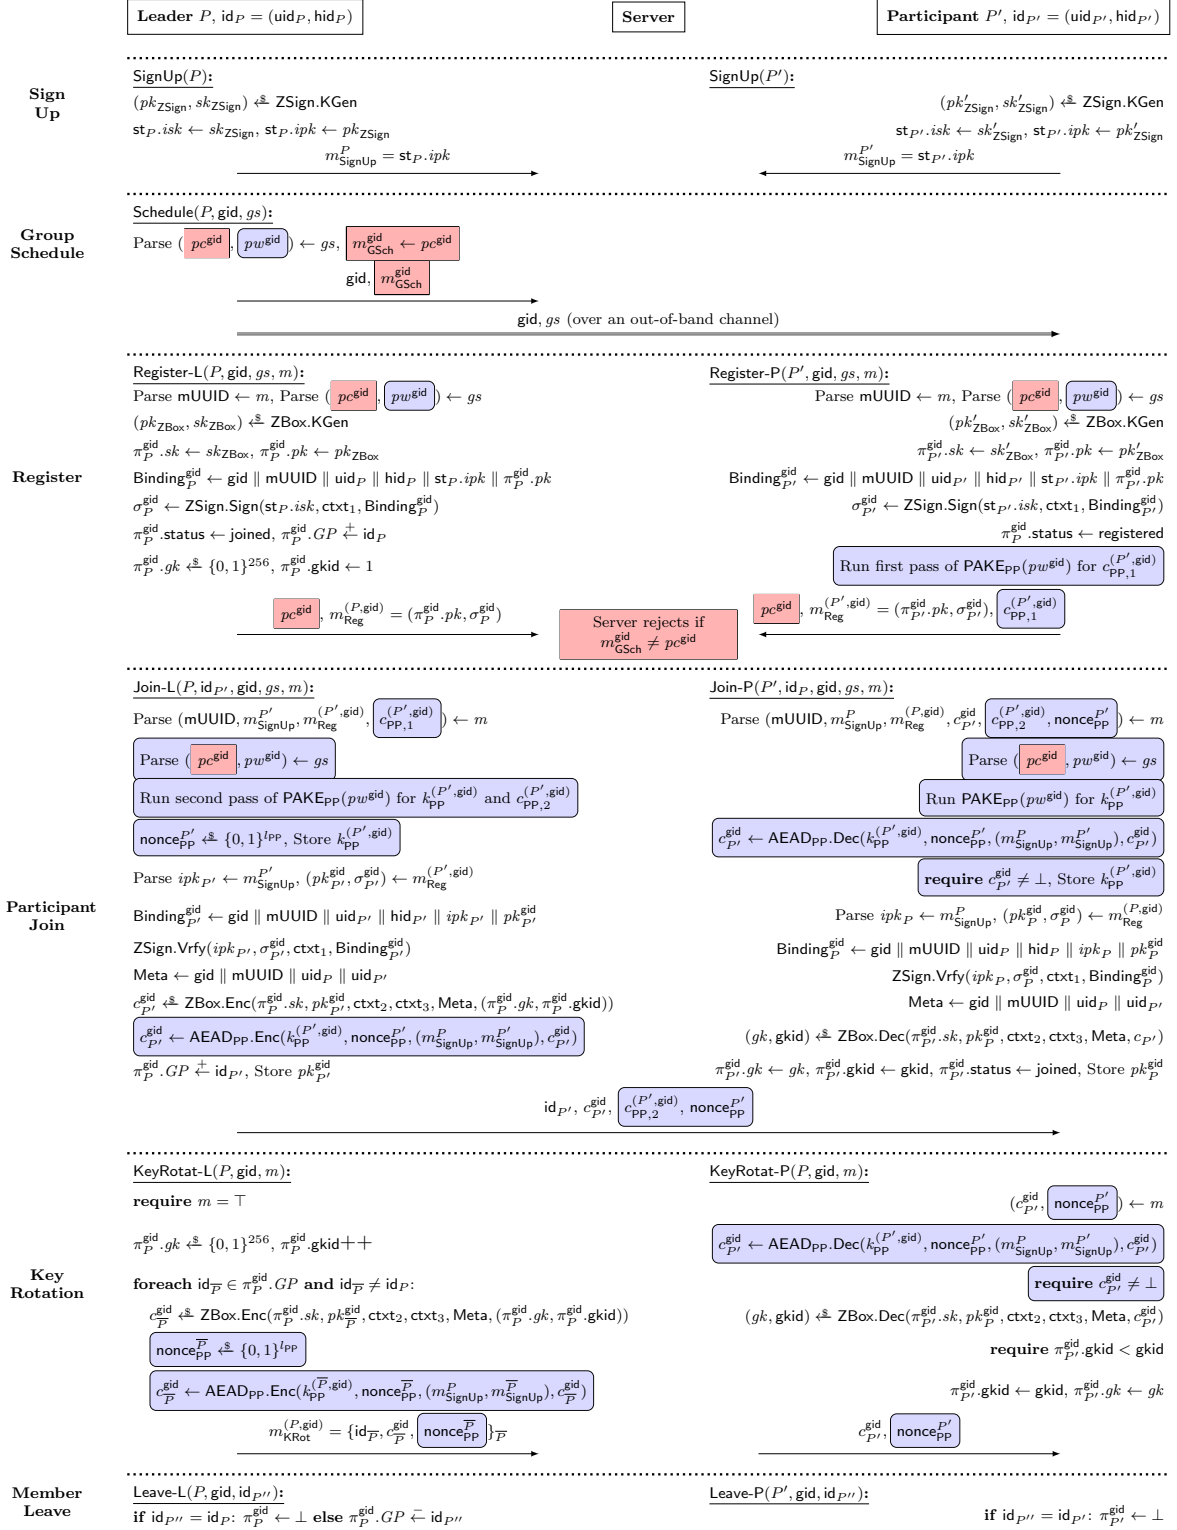 Leader P, id_P = (uid_P, hid_P)
Server
Participant P′, id_{P′} = (uid_{P′}, hid_{P′})
Sign Up
SignUp(P):
(pk_ZSign, sk_ZSign) ←$ ZSign.KGen
st_P.isk ← sk_ZSign, st_P.ipk ← pk_ZSign
m^P_SignUp = st_P.ipk
SignUp(P′):
(pk′_ZSign, sk′_ZSign) ←$ ZSign.KGen
st_{P′}.isk ← sk′_ZSign, st_{P′}.ipk ← pk′_ZSign
m^{P′}_SignUp = st_{P′}.ipk
Group Schedule
Schedule(P, gid, gs):
Parse (pc^gid, pw^gid) ← gs, m^gid_GSch ← pc^gid
gid, m^gid_GSch
gid, gs (over an out-of-band channel)
Register
Register-L(P, gid, gs, m):
Parse mUUID ← m, Parse (pc^gid, pw^gid) ← gs
(pk_ZBox, sk_ZBox) ←$ ZBox.KGen
π^gid_P.sk ← sk_ZBox, π^gid_P.pk ← pk_ZBox
Binding^gid_P ← gid ∥ mUUID ∥ uid_P ∥ hid_P ∥ st_P.ipk ∥ π^gid_P.pk
σ^gid_P ← ZSign.Sign(st_P.isk, ctxt_1, Binding^gid_P)
π^gid_P.status ← joined, π^gid_P.GP ←+ id_P
π^gid_P.gk ←$ {0, 1}^256, π^gid_P.gkid ← 1
pc^gid, m^(P,gid)_Reg = (π^gid_P.pk, σ^gid_P)
Server rejects if
m^gid_GSch ≠ pc^gid
Register-P(P′, gid, gs, m):
Parse mUUID ← m, Parse (pc^gid, pw^gid) ← gs
(pk′_ZBox, sk′_ZBox) ←$ ZBox.KGen
π^gid_{P′}.sk ← sk′_ZBox, π^gid_{P′}.pk ← pk′_ZBox
Binding^gid_{P′} ← gid ∥ mUUID ∥ uid_{P′} ∥ hid_{P′} ∥ st_{P′}.ipk ∥ π^gid_{P′}.pk
σ^gid_{P′} ← ZSign.Sign(st_{P′}.isk, ctxt_1, Binding^gid_{P′})
π^gid_P.status ← registered
Run first pass of PAKE_PP(pw^gid) for c^(P′,gid)_PP,1
pc^gid, m^(P′,gid)_Reg = (π^gid_{P′}.pk, σ^gid_{P′}), c^(P′,gid)_PP,1
Participant Join
Join-L(P, id_{P′}, gid, gs, m):
Parse (mUUID, m^{P′}_SignUp, m^(P′,gid)_Reg, c^(P′,gid)_PP,1) ← m
Parse (pc^gid, pw^gid) ← gs
Run second pass of PAKE_PP(pw^gid) for k^(P′,gid)_PP and c^(P′,gid)_PP,2
nonce^{P′}_PP ←$ {0, 1}^{l_PP}, Store k^(P′,gid)_PP
Parse ipk_{P′} ← m^{P′}_SignUp, (pk^gid_{P′}, σ^gid_{P′}) ← m^(P′,gid)_Reg
Binding^gid_{P′} ← gid ∥ mUUID ∥ uid_{P′} ∥ hid_{P′} ∥ ipk_{P′} ∥ pk^gid_{P′}
ZSign.Vrfy(ipk_{P′}, σ^gid_{P′}, ctxt_1, Binding^gid_{P′})
Meta ← gid ∥ mUUID ∥ uid_P ∥ uid_{P′}
c^gid_{P′} ←$ ZBox.Enc(π^gid_P.sk, pk^gid_{P′}, ctxt_2, ctxt_3, Meta, (π^gid_P.gk, π^gid_P.gkid))
c^gid_{P′} ← AEAD_PP.Enc(k^(P′,gid)_PP, nonce^{P′}_PP, (m^P_SignUp, m^{P′}_SignUp), c^gid_{P′})
π^gid_P.GP ←+ id_{P′}, Store pk^gid_{P′}
Join-P(P′, id_P, gid, gs, m):
Parse (mUUID, m^P_SignUp, m^(P,gid)_Reg, c^gid_{P′}, c^(P′,gid)_PP,2, nonce^{P′}_PP) ← m
Parse (pc^gid, pw^gid) ← gs
Run PAKE_PP(pw^gid) for k^(P′,gid)_PP
c^gid_{P′} ← AEAD_PP.Dec(k^(P′,gid)_PP, nonce^{P′}_PP, (m^P_SignUp, m^{P′}_SignUp), c^gid_{P′})
require c^gid_{P′} ≠ ⊥, Store k^(P′,gid)_PP
Parse ipk_P ← m^P_SignUp, (pk^gid_P, σ^gid_P) ← m^(P,gid)_Reg
Binding^gid_P ← gid ∥ mUUID ∥ uid_P ∥ hid_P ∥ ipk_P ∥ pk^gid_P
ZSign.Vrfy(ipk_P, σ^gid_P, ctxt_1, Binding^gid_P)
Meta ← gid ∥ mUUID ∥ uid_P ∥ uid_{P′}
(gk, gkid) ←$ ZBox.Dec(π^gid_{P′}.sk, pk^gid_P, ctxt_2, ctxt_3, Meta, c_{P′})
π^gid_{P′}.gk ← gk, π^gid_{P′}.gkid ← gkid, π^gid_{P′}.status ← joined, Store pk^gid_P
id_{P′}, c^gid_{P′}, c^(P′,gid)_PP,2, nonce^{P′}_PP
Key Rotation
KeyRotat-L(P, gid, m):
require m = ⊤
π^gid_P.gk ←$ {0, 1}^256, π^gid_P.gkid++
foreach id_P̅ ∈ π^gid_P.GP and id_P̅ ≠ id_P:
c^gid_P̅ ←$ ZBox.Enc(π^gid_P.sk, pk^gid_P̅, ctxt_2, ctxt_3, Meta, (π^gid_P.gk, π^gid_P.gkid))
nonce^P̅_PP ←$ {0, 1}^{l_PP}
c^gid_P̅ ← AEAD_PP.Enc(k^(P̅,gid)_PP, nonce^P̅_PP, (m^P_SignUp, m^P̅_SignUp), c^gid_P̅)
m^(P,gid)_KRot = {id_P̅, c^gid_P̅, nonce^P̅_PP}_P̅
KeyRotat-P(P, gid, m):
(c^gid_{P′}, nonce^{P′}_PP) ← m
c^gid_{P′} ← AEAD_PP.Dec(k^(P′,gid)_PP, nonce^{P′}_PP, (m^P_SignUp, m^{P′}_SignUp), c^gid_{P′})
require c^gid_{P′} ≠ ⊥
(gk, gkid) ←$ ZBox.Dec(π^gid_{P′}.sk, pk^gid_P, ctxt_2, ctxt_3, Meta, c^gid_{P′})
require π^gid_{P′}.gkid < gkid
π^gid_{P′}.gkid ← gkid, π^gid_{P′}.gk ← gk
c^gid_{P′}, nonce^{P′}_PP
Member Leave
Leave-L(P, gid, id_{P″}):
if id_{P″} = id_P: π^gid_P ← ⊥ else π^gid_P.GP ←− id_{P″}
Leave-P(P′, gid, id_{P″}):
if id_{P″} = id_{P′}: π^gid_{P′} ← ⊥